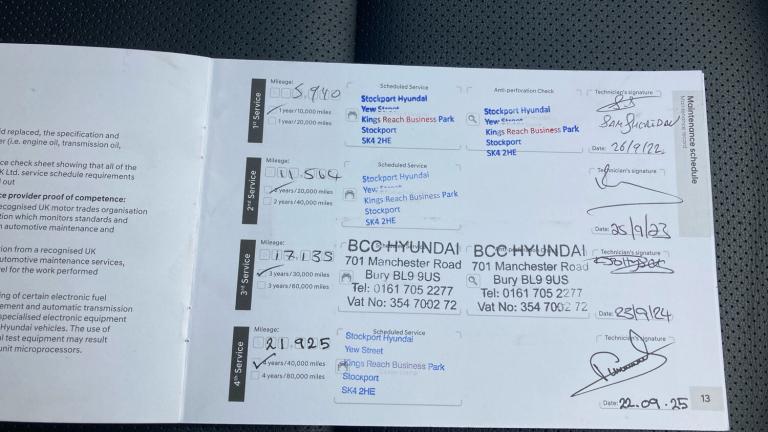 d replaced, the specification and
er (i.e. engine oil, transmission oil,
ce check sheet showing that all of the
K Ltd. service schedule requirements
out
e provider proof of competence:
ecognised UK motor trades organisation
tion which monitors standards and
n automotive maintenance and
ion from a recognised UK
utomotive maintenance services,
vel for the work performed
ng of certain electronic fuel
ement and automatic transmission
specialised electronic equipment
Hyundai vehicles. The use of
l test equipment may result
unit microprocessors.
Maintenance schedule
Maintenance record
1st Service
Mileage:
5,940
1 year/10,000 miles
1 year/20,000 miles
Scheduled Service
Stockport Hyundai
Yew Street
Kings Reach Business Park
Stockport
SK4 2HE
Anti-perforation Check
Stockport Hyundai
Yew Street
Kings Reach Business Park
Stockport
SK4 2HE
Technician's signature
SAM SHERIDAN
Date: 26/9/22
2nd Service
Mileage:
11,564
2 years/20,000 miles
2 years/40,000 miles
Scheduled Service
Stockport Hyundai
Yew
Kings Reach Business Park
Stockport
SK4 2HE
Technician's signature
Date: 25/9/23
3rd Service
Mileage:
17,135
3 years/30,000 miles
3 years/60,000 miles
BCC HYUNDAI
701 Manchester Road
Bury BL9 9US
Tel: 0161 705 2277
Vat No: 354 7002 72
BCC HYUNDAI
701 Manchester Road
Bury BL9 9US
Tel: 0161 705 2277
Vat No: 354 7002 72
Technician's signature
Date: 23/9/24
4th Service
Mileage:
21,925
4 years/40,000 miles
4 years/80,000 miles
Scheduled Service
Stockport Hyundai
Yew Street
Kings Reach Business Park
Stockport
SK4 2HE
Technician's signature
Date: 22.09.25
13